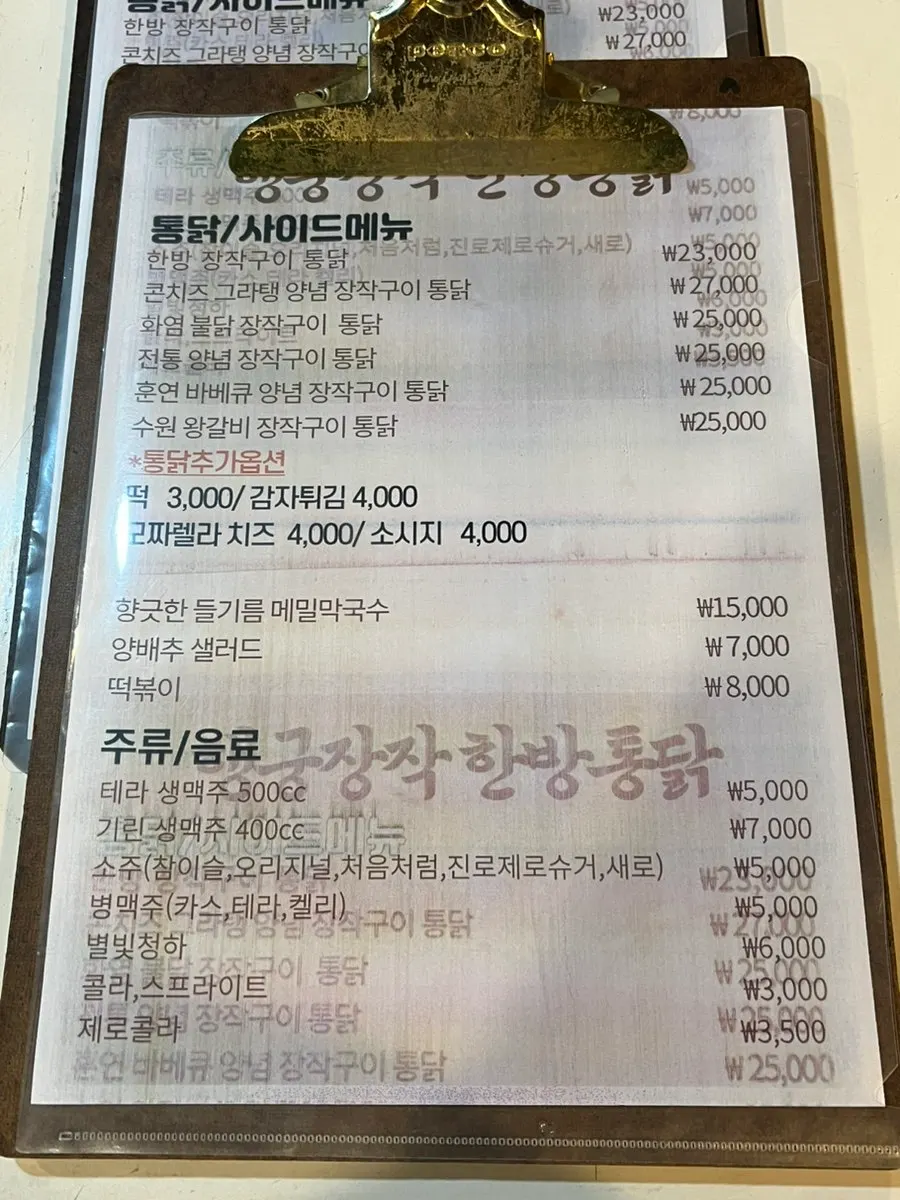 한방 장작구이 통닭 ₩23,000
콘치즈 그라탱 양념 장작구이 ₩27,000
통닭/사이드메뉴
한방 장작구이 통닭 ₩23,000
콘치즈 그라탱 양념 장작구이 통닭 ₩27,000
화염 불닭 장작구이 통닭 ₩25,000
전통 양념 장작구이 통닭 ₩25,000
훈연 바베큐 양념 장작구이 통닭 ₩25,000
수원 왕갈비 장작구이 통닭 ₩25,000
*통닭추가옵션
떡 3,000/ 감자튀김 4,000
모짜렐라 치즈 4,000/ 소시지 4,000
향긋한 들기름 메밀막국수 ₩15,000
양배추 샐러드 ₩7,000
떡볶이 ₩8,000
주류/음료
장작 한방통닭
테라 생맥주 500cc ₩5,000
기린 생맥주 400cc ₩7,000
소주(참이슬,오리지널,처음처럼,진로제로슈거,새로) ₩5,000
병맥주(카스,테라,켈리) ₩5,000
별빛청하 ₩6,000
콜라,스프라이트 ₩3,000
제로콜라 ₩3,500
훈연 바베큐 양념 장작구이 통닭 ₩25,000